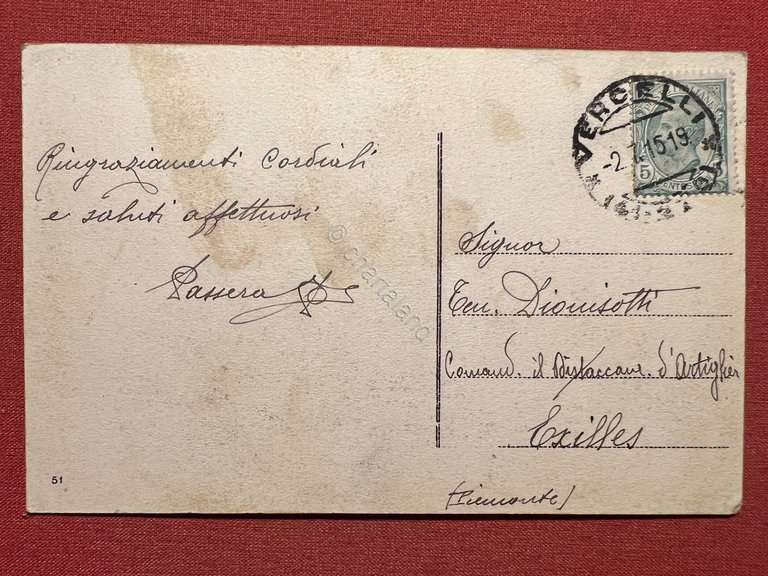 Ringraziamenti Cordiali
e saluti affettuosi
Passera
VERCELLI
-2. 15 19
5
Signor
Ten. Dionisotti
Comand. il Distaccam. d'Artiglier
Exilles
(Piemonte)
51